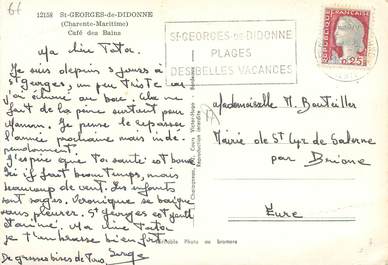 12158 St-GEORGES-de-DIDONNE
(Charente-Maritime)
Café des Bains
Ma Line Tator.
Je suis depuis 5 jours à
St Georges, un peu triste car
j'ai échoué au bac. Cela me
fait de la peine surtout pour
Maman. Je pense le repasser
l'année prochaine mais indé-
pendamment.
J'espère que ta santé est bonne
Ici il fait beau temps, mais
beaucoup de vent. Les enfants
sont sages. Véronique se baigne
sans pleurer. St Georges est gentil
Ma Line Tator
je t'embrasse bien fort
Serge
De grosses bises de tous
Cours Victor-Hugo - Bordeaux
Reproduction interdite
Véritable Photo au bromure
ST-GEORGES-de-DIDONNE
PLAGES
DES BELLES VACANCES
REPUBLIQUE FRANCAISE
0,25
Mademoiselle M. Bouteiller
Mairie de St Cyr de Salerne
par Brione
Eure